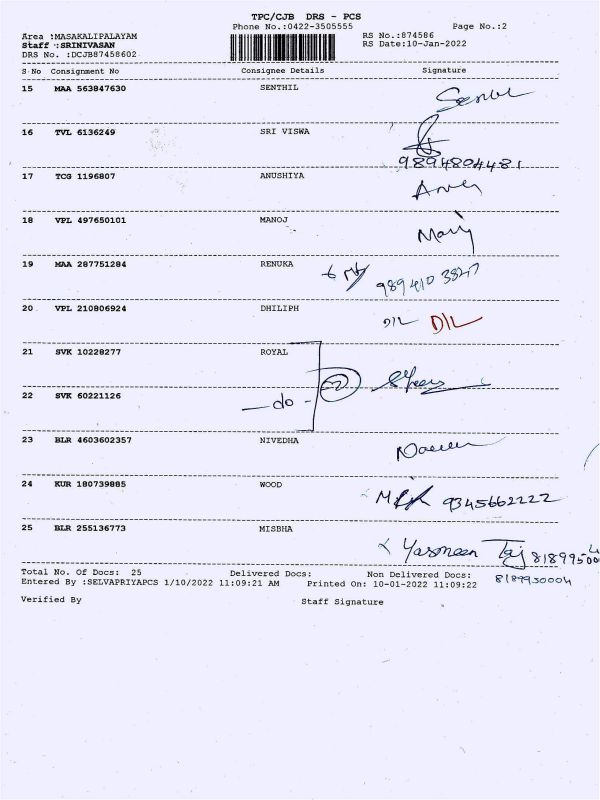 TPC/CJB DRS - PCS
Phone No.:0422-3505555
Page No.:2
Area :MASAKALIPALAYAM
RS No.:874586
Staff :SRINIVASAN
RS Date:10-Jan-2022
DRS No. :DCJB87458602
S No Consignment No Consignee Details Signature
15 MAA 563847630 SENTHIL
16 TVL 6136249 SRI VISWA
9894804481
17 TCG 1196807 ANUSHIYA
18 VPL 497650101 MANOJ
19 MAA 287751284 RENUKA
20 VPL 210806924 DHILIPH DIL DIL
21 SVK 10228277 ROYAL
22 SVK 60221126 -do-
23 BLR 4603602357 NIVEDHA
24 KUR 180739885 WOOD 9345662222
25 BLR 255136773 MISBHA
Yasmeen Taj
Total No. Of Docs: 25 Delivered Docs: Non Delivered Docs:
Entered By :SELVAPRIYAPCS 1/10/2022 11:09:21 AM Printed On: 10-01-2022 11:09:22
8189950004
Verified By Staff Signature